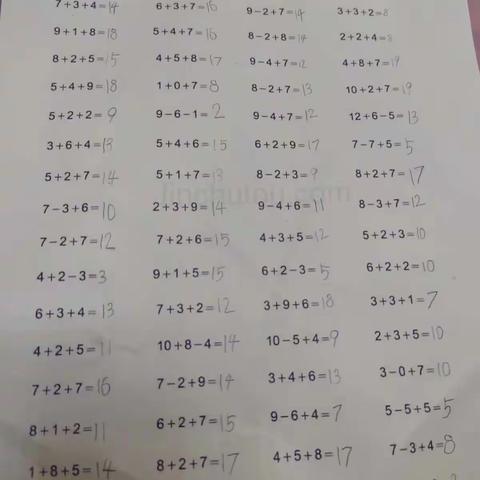 7+3+4=14 6+3+7=16 9-2+7=14 3+3+2=8
9+1+8=18 5+4+7=16 8-2+8=14 2+2+4=8
8+2+5=15 4+5+8=17 9-4+7=12 4+8+7=19
5+4+9=18 1+0+7=8 8-2+7=13 10+2+7=19
5+2+2=9 9-6-1=2 9-4+7=12 12+6-5=13
3+6+4=13 5+4+6=15 6+2+9=17 7-7+5=5
5+2+7=14 5+1+7=13 8-2+3=9 8+2+7=17
7-3+6=10 2+3+9=14 9-4+6=11 8-3+7=12
7-2+7=12 7+2+6=15 4+3+5=12 5+2+3=10
4+2-3=3 9+1+5=15 6+2-3=5 6+2+2=10
6+3+4=13 7+3+2=12 3+9+6=18 3+3+1=7
4+2+5=11 10+8-4=14 10-5+4=9 2+3+5=10
7+2+7=16 7-2+9=14 3+4+6=13 3-0+7=10
8+1+2=11 6+2+7=15 9-6+4=7 5-5+5=5
1+8+5=14 8+2+7=17 4+5+8=17 7-3+4=8